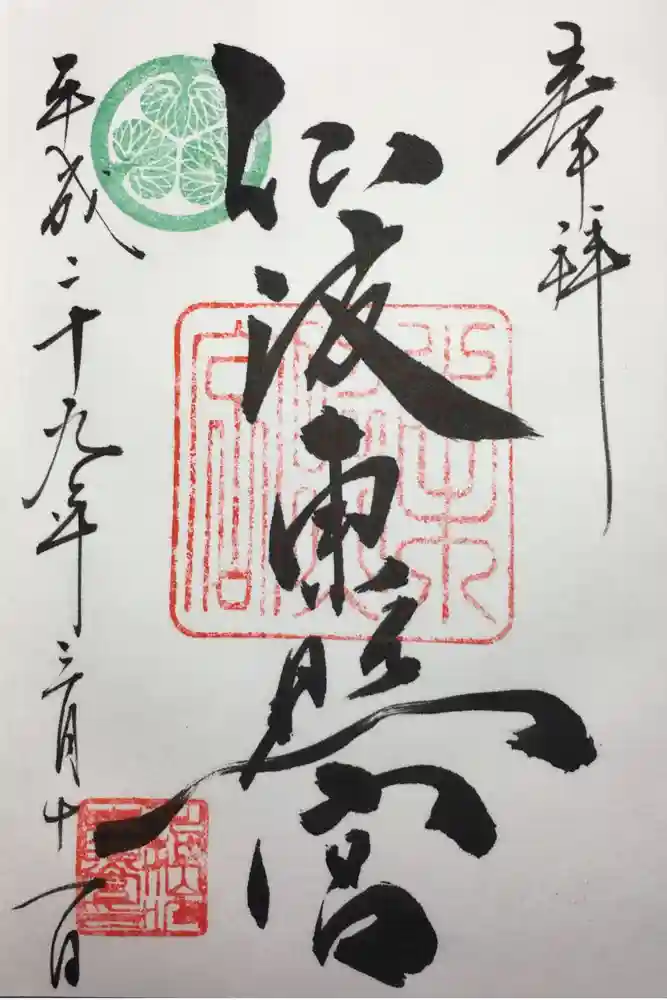 奉拝
仙波東照宮
平成二十九年三月十一日